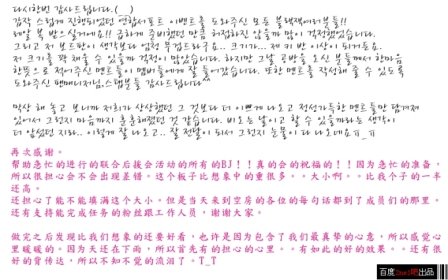 다시한번 감사드립니다.(__)
갑작스럽게 진행되었던 연합서포트 이벤트를 도와주신 모든 블랙잭여러분들!!
레알 복 받으실거에요!! 급하게 준비했던 만큼 허접하진 않을까 걱정이 많았습니다.
그리고 저 보드판이 생각보다 엄청 무겁드라구요.. 크기가... 제 키 반 이상이 되거든요.
저 크기를 꽉 채울 수 있을까 걱정이 많았습니다. 하지만 그날 공방을 오신 분들께서 한마음
한뜻으로 적어주신 멘트들이 멤버들에게 잘 들어갔습니다. 또한 멘트를 작성해 줄 수 있도록
도와주신 팬매니저님.스탭분들 감사드립니다^^
막상 해놓고 보니까 저희가 상상했던 그 것보다 더 이쁘게 나오고 정성가득한 멘트들만 담겨져
있어서 그런지 마음까지 훈훈해졌던 것 같습니다. 비오는 날이고 할 수 있을까라는 생각이
더 앞섰던 지라.. 이렇게 잘 나오고.. 잘 전달이 되서 그런지 눈물이 다 나오네요 ㅠ_ㅠ
再次感谢。
帮助急忙的进行的联合后援会活动的所有的BJ！！真的会的祝福的！！因为急忙的准备，
所以很担心会不会出现差错。这个板子比想象中的重很多。。大小啊。。比我个子的一半
还高。
还担心了能不能填满这个大小。但是当天来到空房的各位的每句话都到了成员们的那里。
还有支持能完成任务的粉丝跟工作人员，谢谢大家。
做完之后发现比我们想象的还要好看，也许是因为包含了我们最真挚的心意，所以感觉心
里暖暖的。因为天还在下雨，所以首先有的担心的心里。，有如此的好的效果。。还有很
好的背传达，所以不知不觉的流泪了。T_T
百度2ne1吧出品